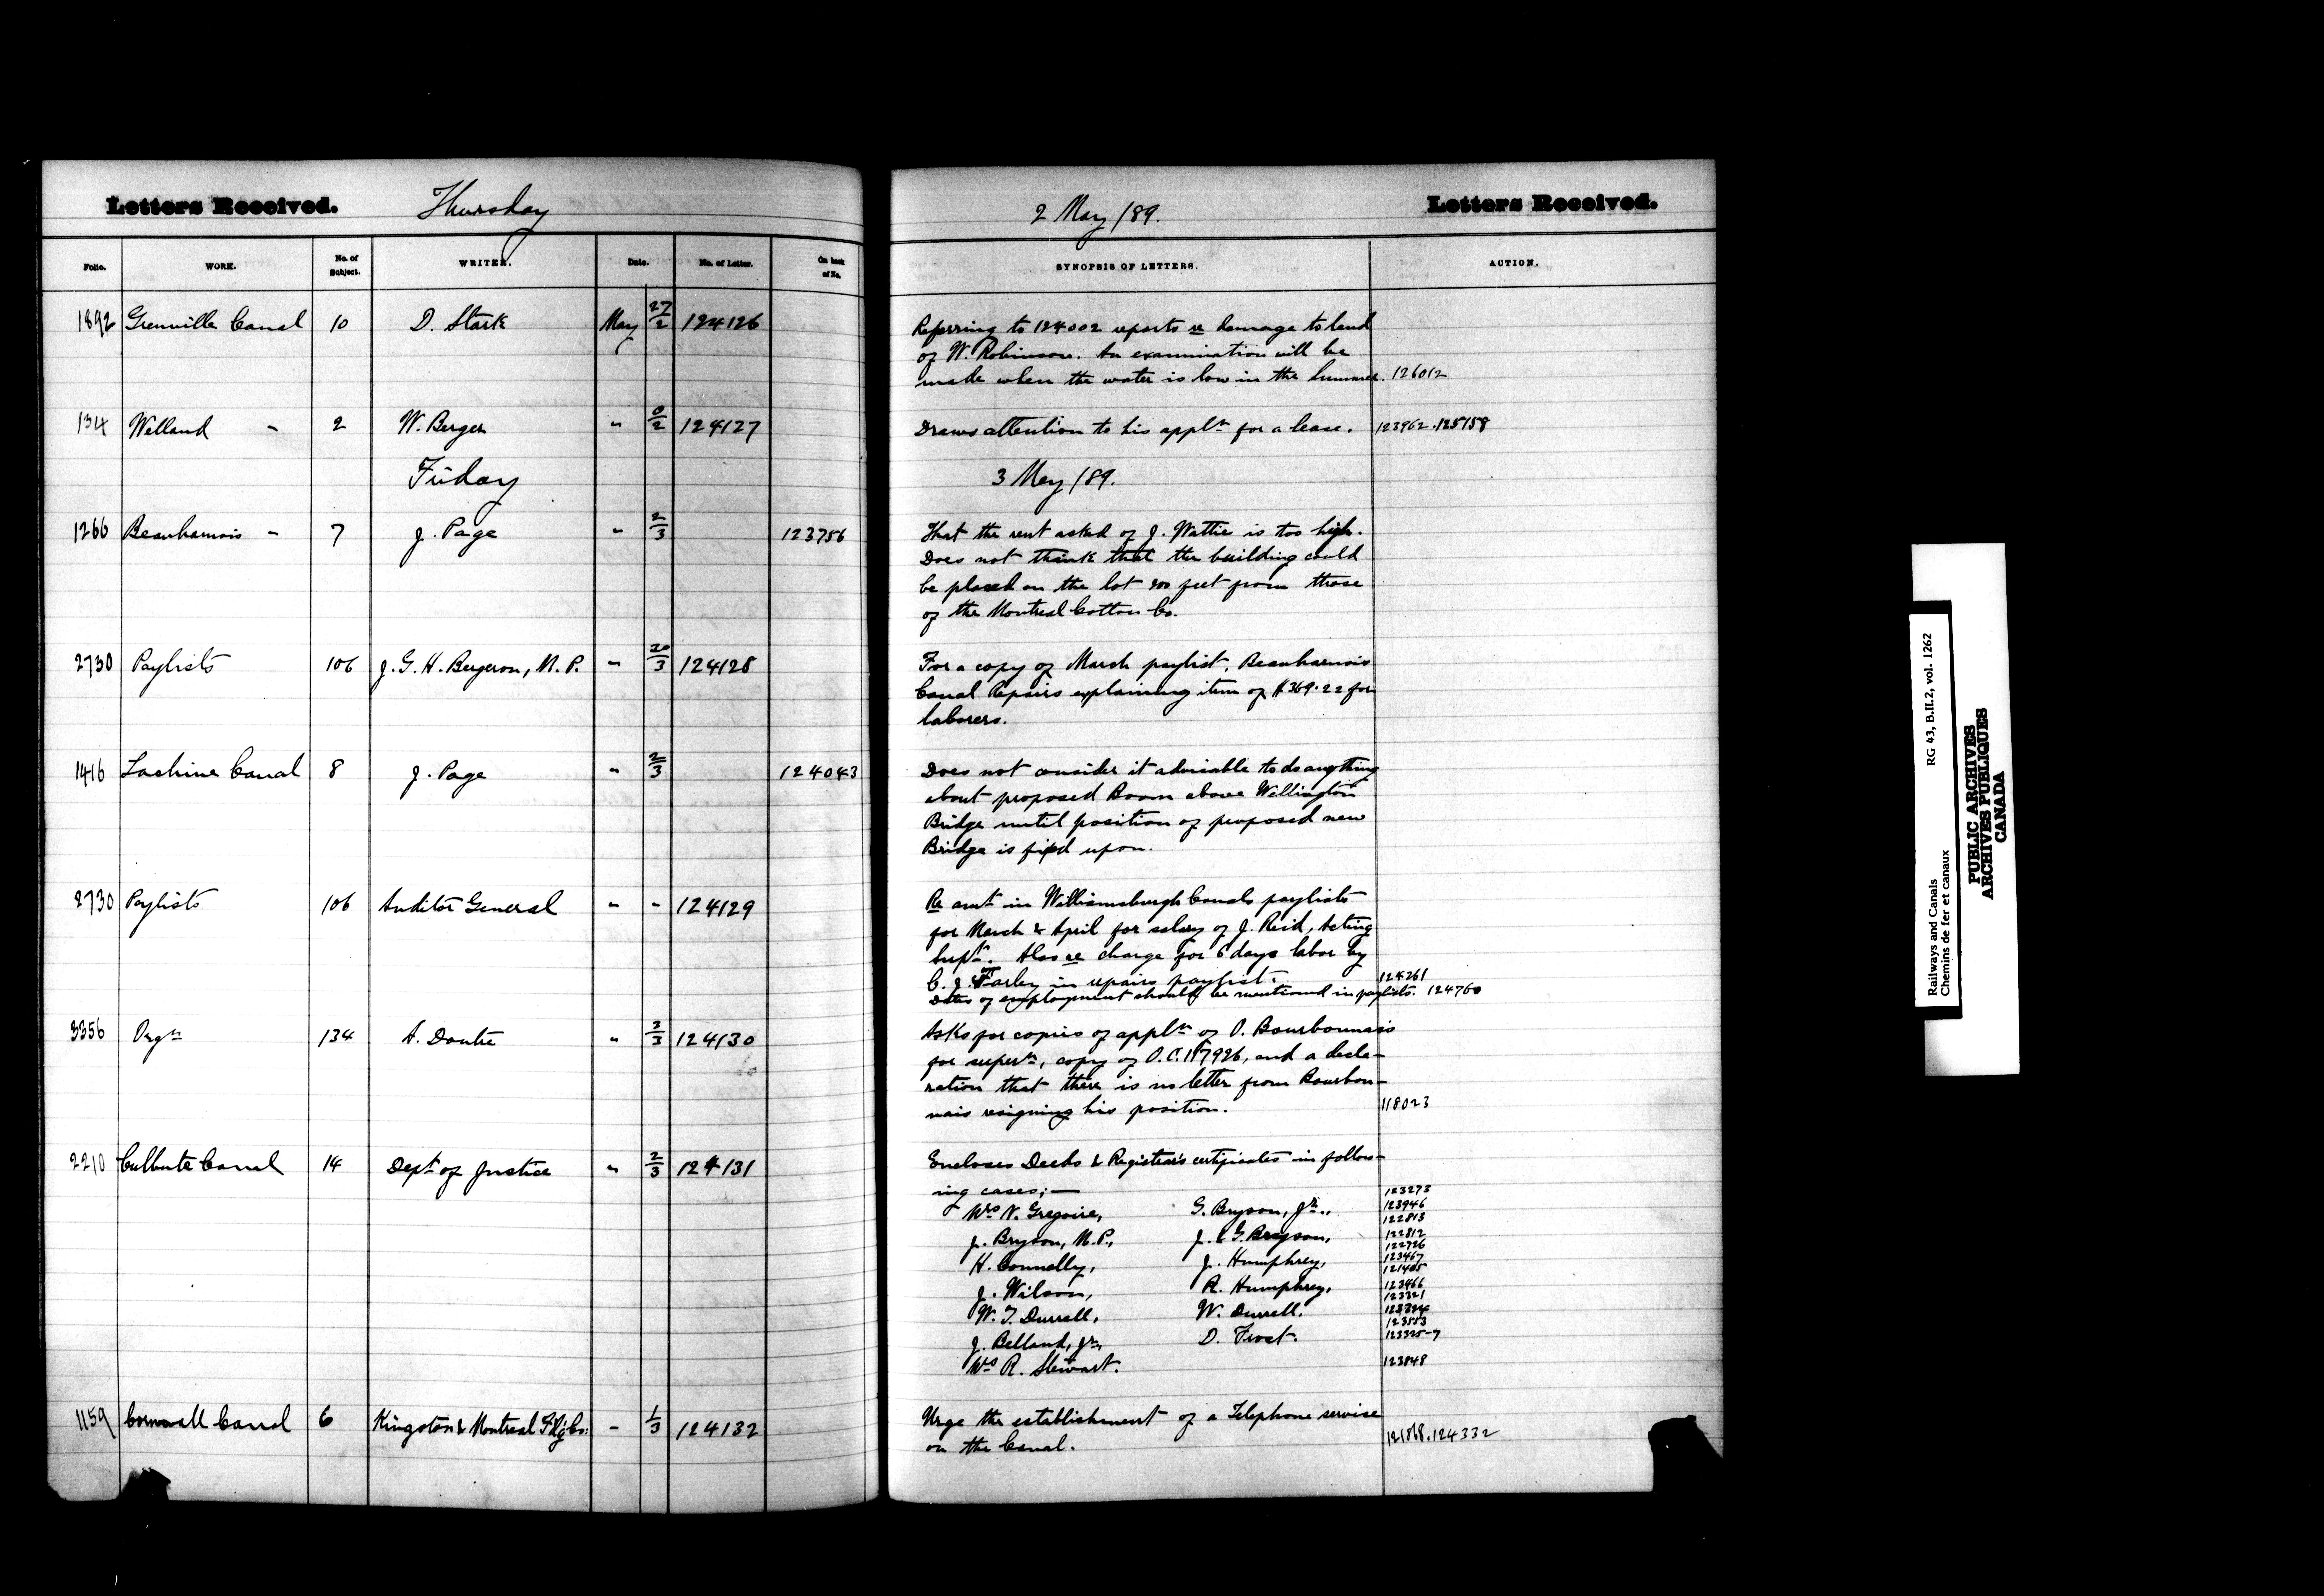 Letters Received. Thursday 2 May /89. Letters Received.
Folio. WORK. No. of Subject. WRITER. Date. No. of Letter. On back of No. SYNOPSIS OF LETTERS. ACTION.
1892 Grenville Canal 10 D. Stark May 27/2 124126 Referring to 124002 reports re damage to land
of W. Robinson. An examination will be
made when the water is low in the summer. 126012
134 Welland " 2 W. Berger " 0/2 124127 Draws attention to his appln for a lease. 123962.125158
Friday 3 May /89.
1266 Beauharnois " 7 J. Page " 2/3 123756 That the rent asked of J. Wattie is too high.
Does not think that the building could
be placed on the lot 200 feet from those
of the Montreal Cotton Co.
2730 Paylists 106 J. G. H. Bergeron, M. P. " 30/3 124128 For a copy of March paylist, Beauharnois
Canal Repairs explaining item of $369.22 for
laborers.
1416 Lachine Canal 8 J. Page " 2/3 124043 Does not consider it advisable to do anything
about proposed Boom above Wellington
Bridge until position of proposed new
Bridge is fixed upon.
2730 Paylists 106 Auditor General " " 124129 Re amt in Williamsburgh Canals paylists
for March & April for salary of J. Reid, Acting
Supt. Also re charge for 6 days labor by
C. J. Farley in repairs paylist. 124261
Dates of employment should be mentioned in paylists. 124760
3356 Orgn 134 A. Doutre " 2/3 124130 Asks for copies of appln of O. Bourbonnais
for supern, copy of O.C. 117926, and a decla-
ration that there is no letter from Bourbon-
nais resigning his position. 118023
2210 Culbute Canal 14 Dept of Justice " 2/3 124131 Encloses Deeds & Registrar's certificates in follow-
ing cases;— 123273
Mrs N. Gregoire, G. Bryson, Jr., 123946
122813
J. Bryson, M.P., J. & G. Bryson, 122812
122726
H. Connelly, J. Humphrey, 123467
121405
J. Wilson, R. Humphrey, 123466
123321
W. T. Durrell, W. Durrell. 123324
123553
J. Belland, Jr, D. Frost. 123325-7
Mrs R. Stewart. 123848
1159 Cornwall Canal 6 Kingston & Montreal Fdg Co: " 1/3 124132 Urge the establishment of a Telephone service
on the Canal. 121868.124332
Railways and Canals RG 43, B.II.2, vol. 1262
Chemins de fer et canaux
PUBLIC ARCHIVES
ARCHIVES PUBLIQUES
CANADA